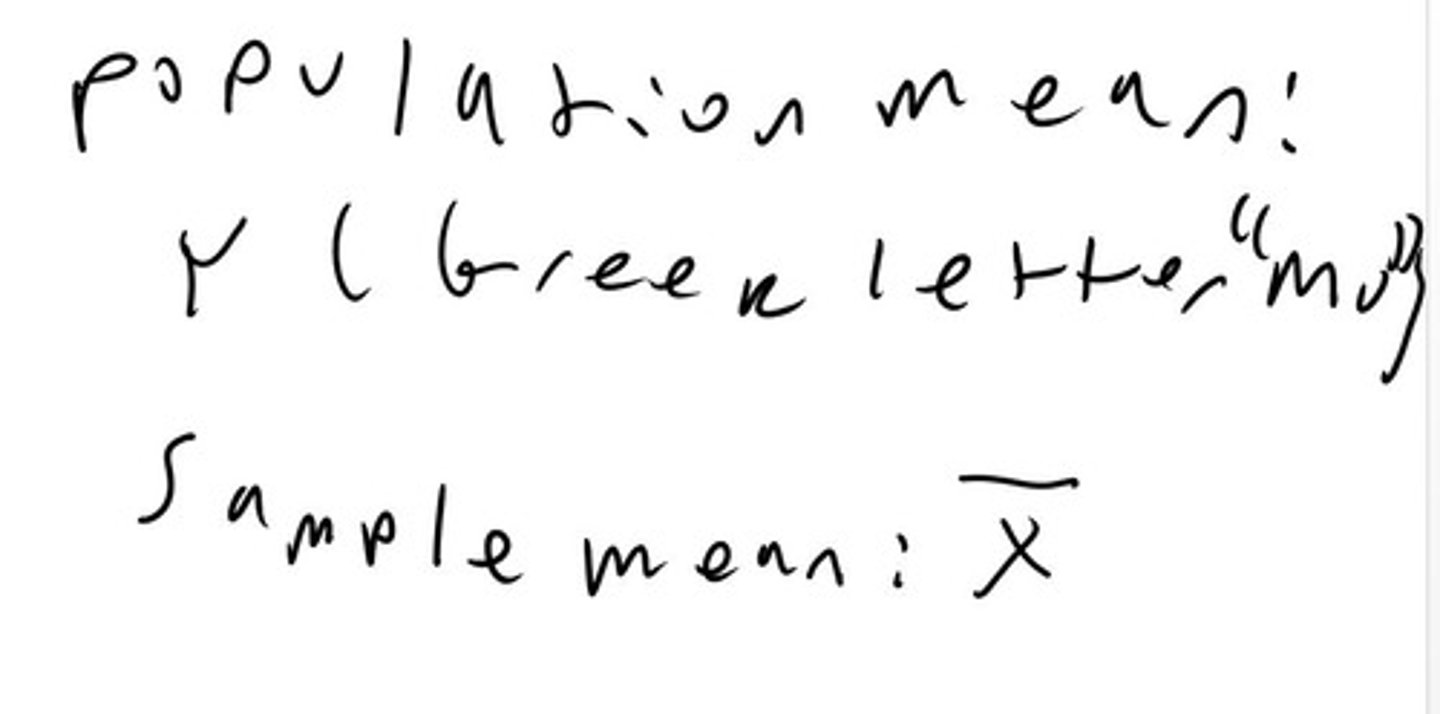 population mean:
μ (Greek letter "mu")
Sample mean: x̄